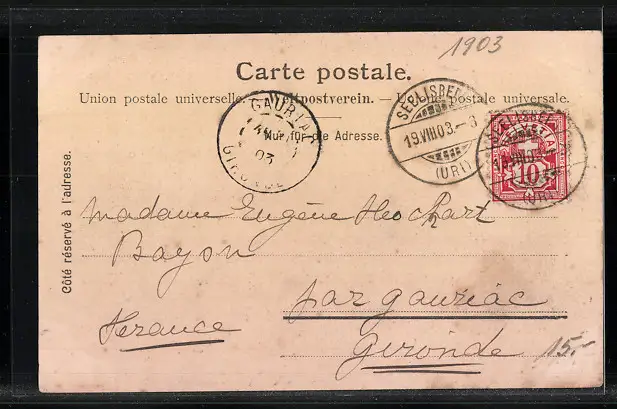 1903
Carte postale.
Union postale universelle. — Weltpostverein. — Union postale universale.
Nur für die Adresse.
Côté réservé à l'adresse.
GAURIAC
03
GIRONDE
SEELISBERG
19.VIII.03.-8
(URI)
HELVETIA
10
(URI)
Madame Eugène Hochart
Bayon
par gauriac
France
Gironde
15.-